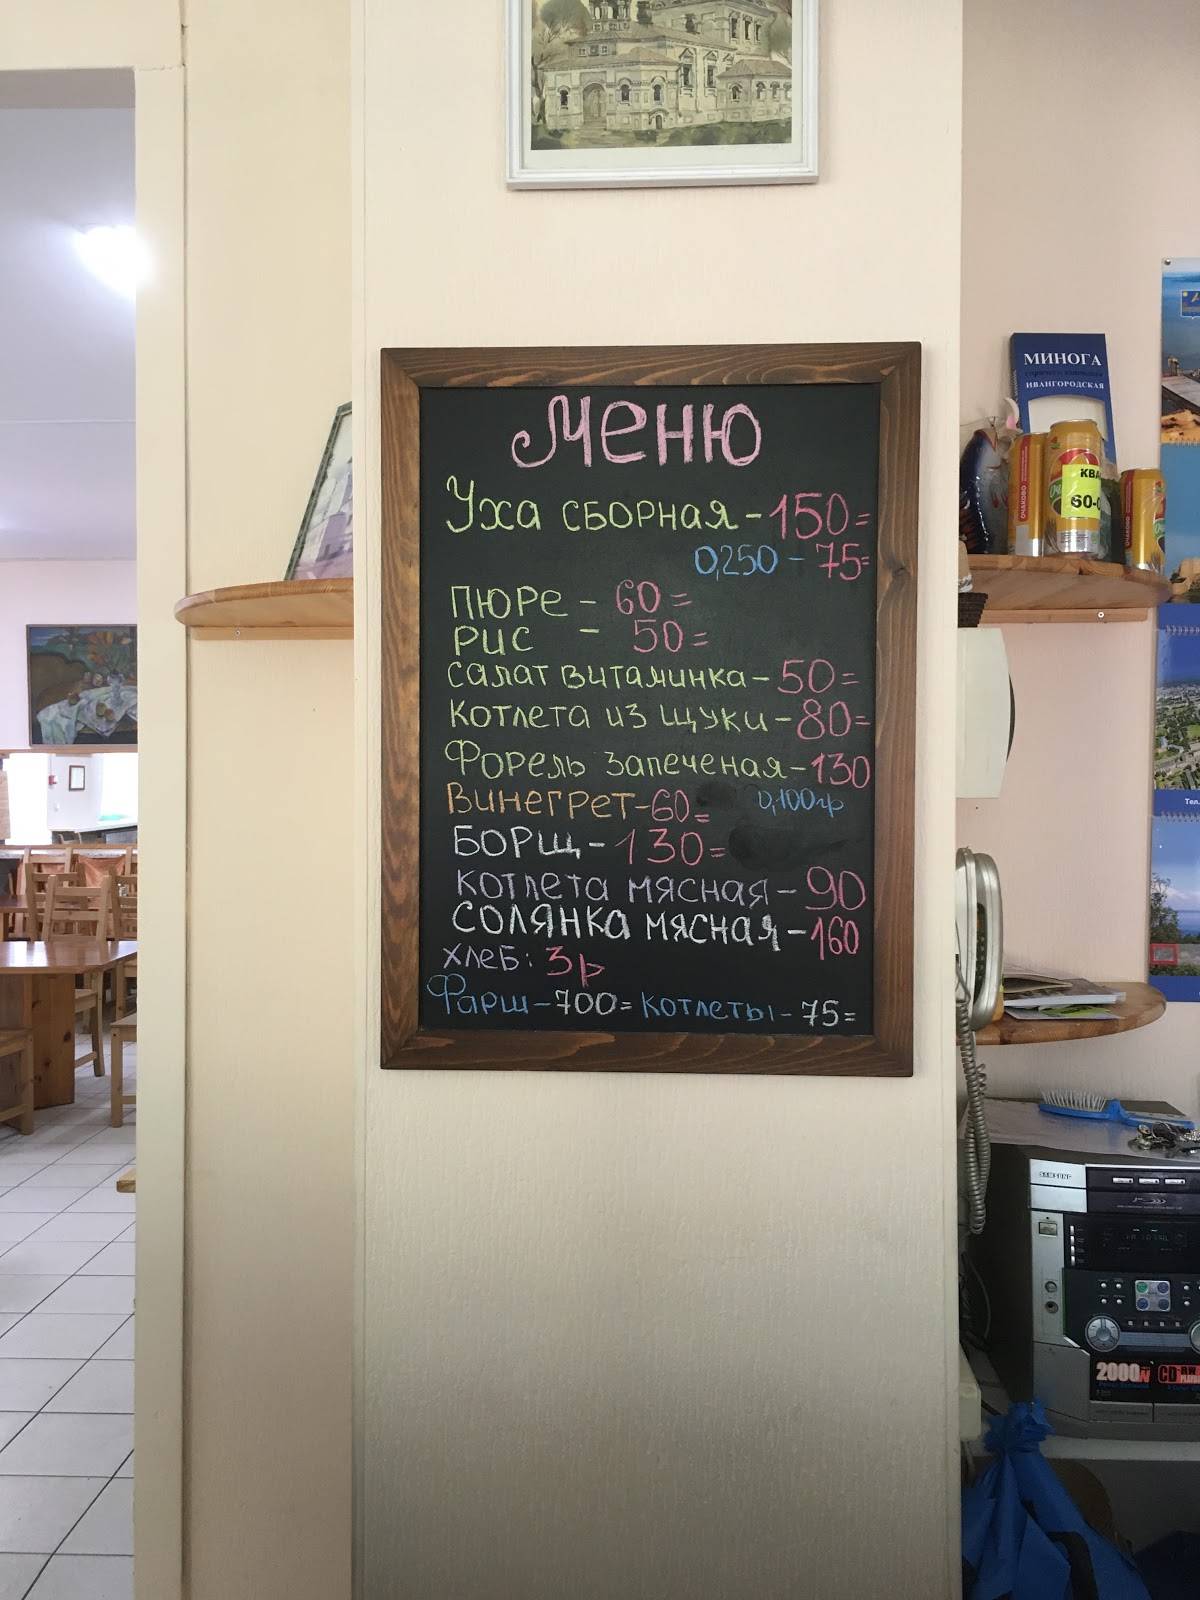 Меню
Уха сборная - 150=
0,250 - 75=
пюре - 60=
рис - 50=
салат витаминка - 50=
котлета из щуки - 80=
Форель запеченая - 130
0,100гр
Винегрет - 60=
Борщ - 130=
котлета мясная - 90
Солянка мясная - 160
хлеб: 3р
Фарш - 700= котлеты - 75=
МИНОГА
ИВАНГОРОДСКАЯ
ОЧАКОВО
КВА
60-0
ОЧАКОВО
Тел.
SAMSUNG
2000W
CD-RW